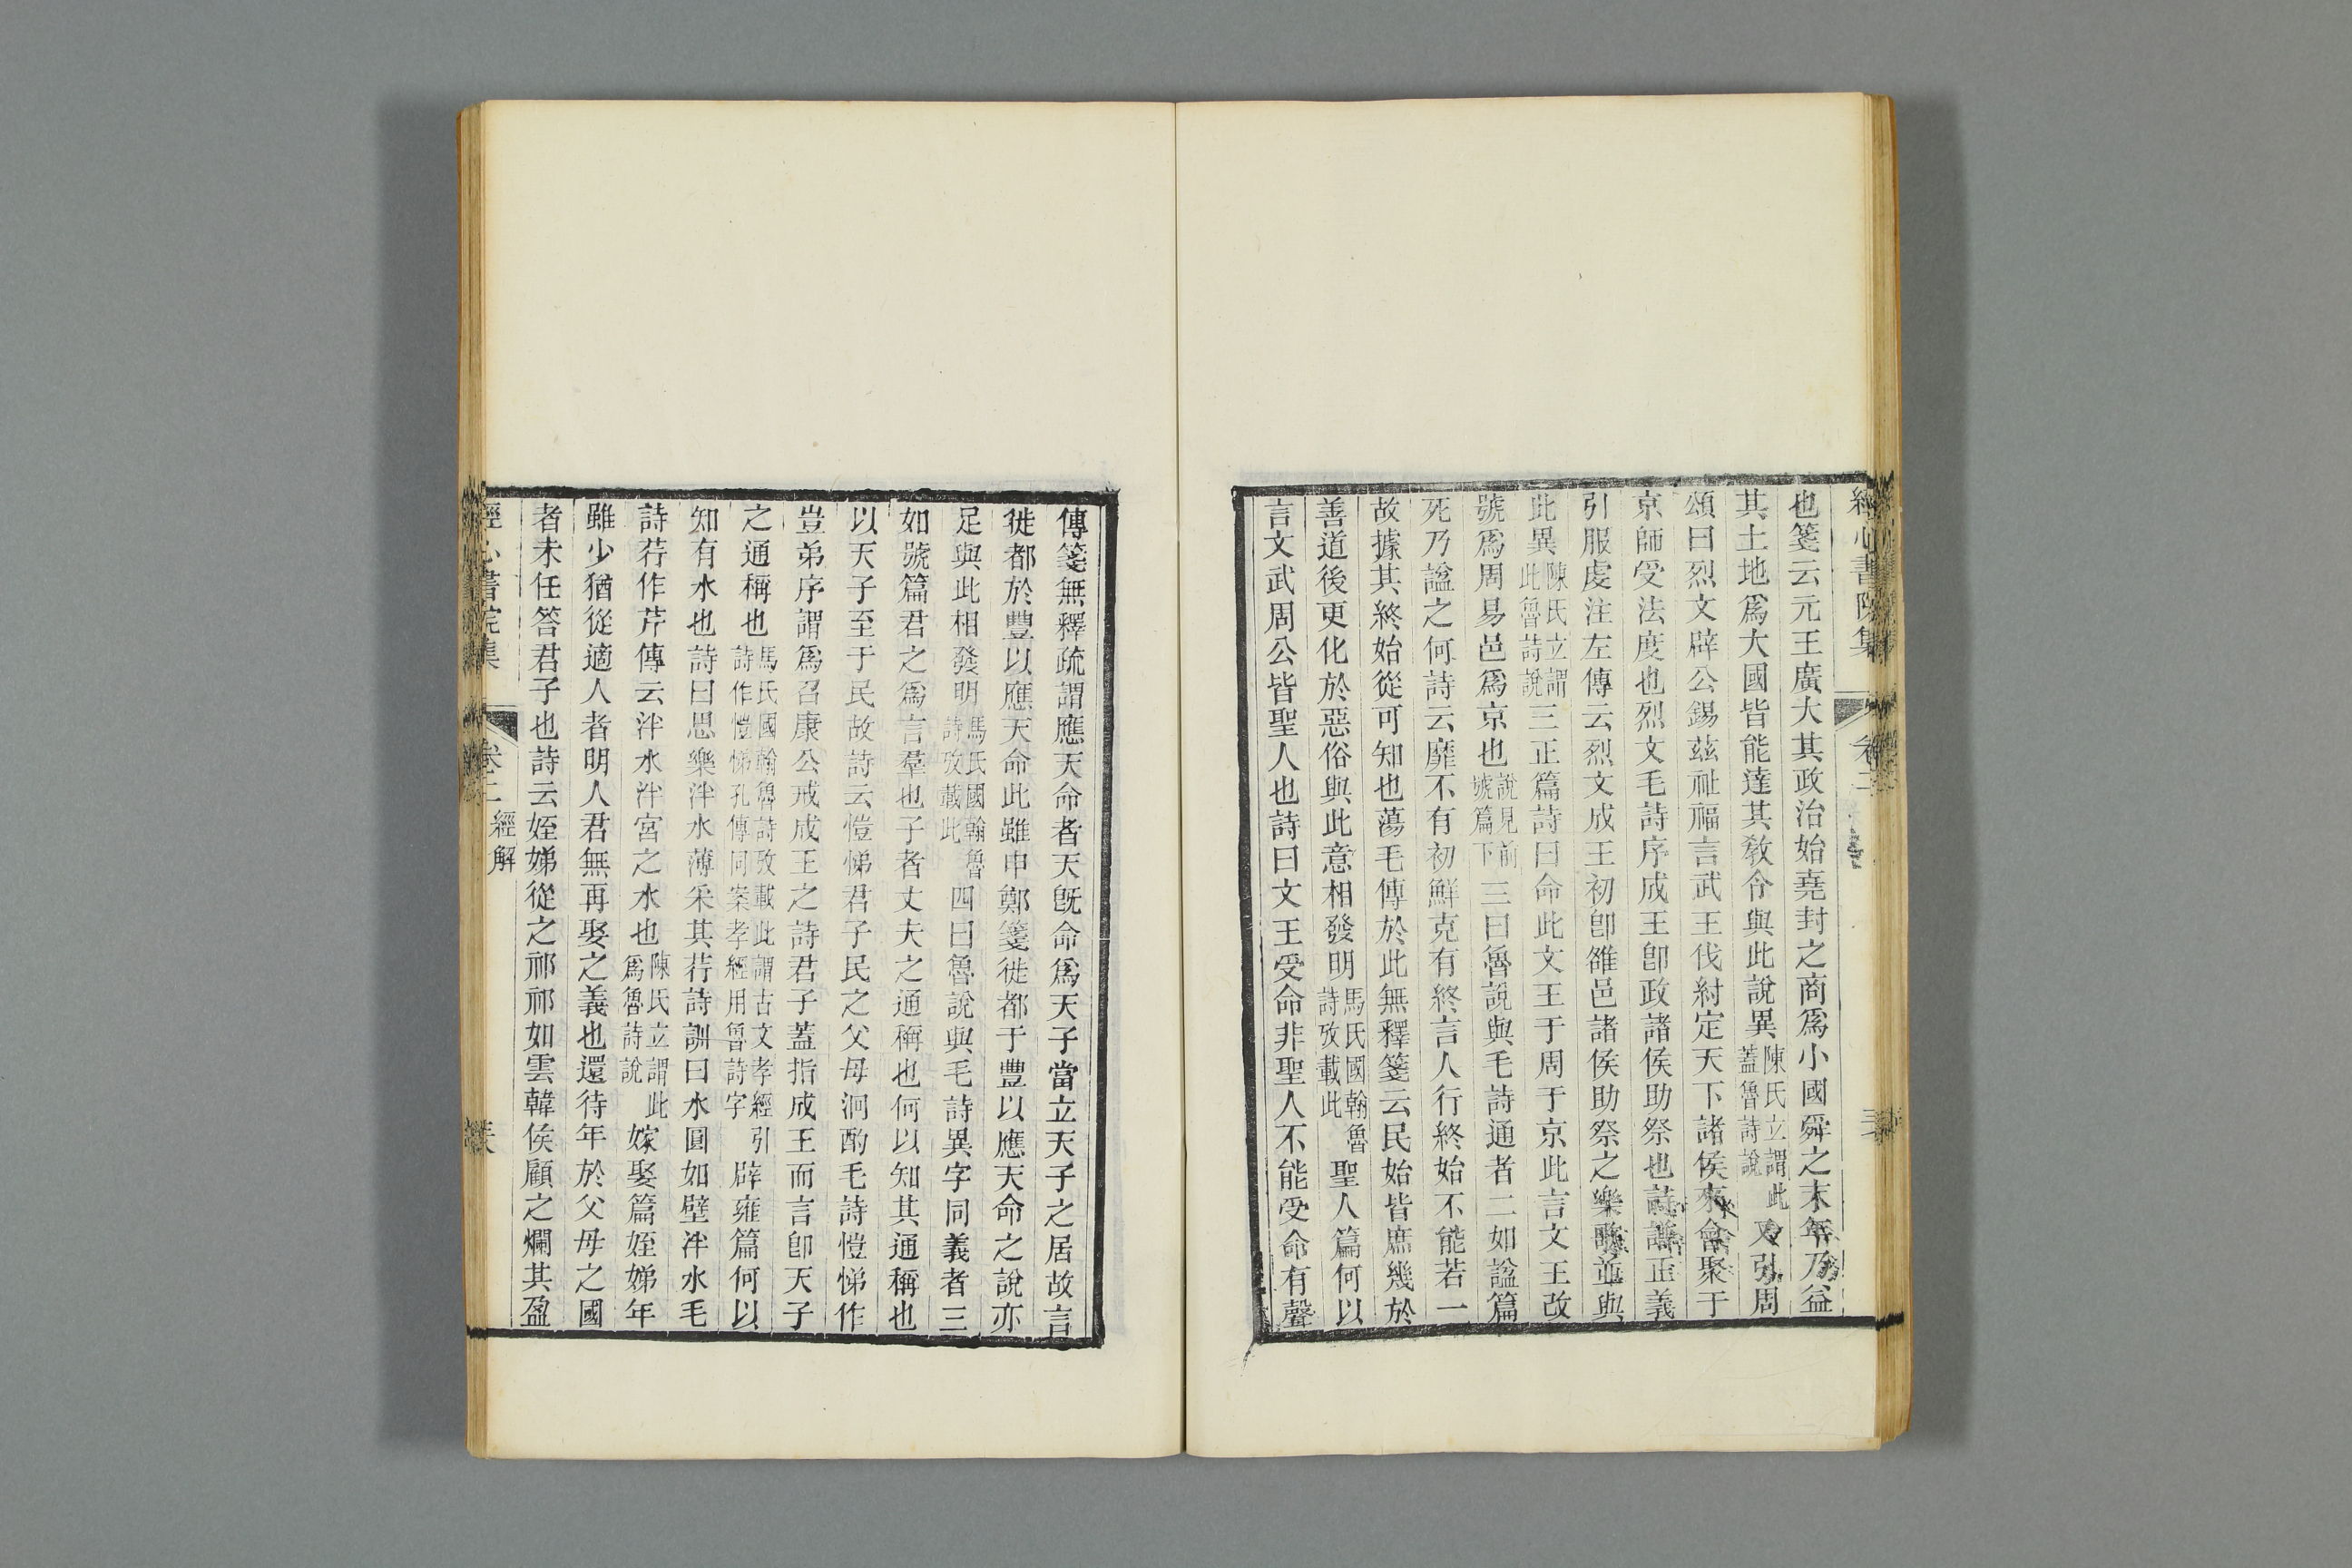 經心書院集 卷二
也箋云元王廣大其政治始堯封之商爲小國舜之末年乃益
其土地爲大國皆能達其敎令與此說異陳氏立謂此蓋魯詩說又引周
頌曰烈文辟公錫茲祉福言武王伐紂定天下諸侯來會聚于
京師受法度也烈文毛詩序成王卽政諸侯助祭也詩譜正義
引服虔注左傳云烈文成王初卽雒邑諸侯助祭之樂歌並與
此異陳氏立謂此魯詩說三正篇詩曰命此文王于周于京此言文王改
號爲周易邑爲京也說見前號篇下三曰魯說與毛詩通者二如諡篇
死乃諡之何詩云靡不有初鮮克有終言人行終始不能若一
故據其終始從可知也蕩毛傳於此無釋箋云民始皆庶幾於
善道後更化於惡俗與此意相發明馬氏國翰魯詩攷載此聖人篇何以
言文武周公皆聖人也詩曰文王受命非聖人不能受命有聲
傳箋無釋疏謂應天命者天旣命爲天子當立天子之居故言
徙都於豐以應天命此雖申鄭箋徙都于豐以應天命之說亦
足與此相發明馬氏國翰魯詩攷載此四曰魯說與毛詩異字同義者三
如號篇君之爲言羣也子者丈夫之通稱也何以知其通稱也
以天子至于民故詩云愷悌君子民之父母泂酌毛詩愷悌作
豈弟序謂爲召康公戒成王之詩君子蓋指成王而言卽天子
之通稱也馬氏國翰魯詩攷載此謂古文孝經引詩作愷悌孔傳同案孝經用魯詩字辟雍篇何以
知有水也詩曰思樂泮水薄采其荇詩訓曰水圓如璧泮水毛
詩荇作芹傳云泮水泮宮之水也陳氏立謂此爲魯詩說嫁娶篇姪娣年
雖少猶從適人者明人君無再娶之義也還待年於父母之國
者未任答君子也詩云姪娣從之祁祁如雲韓侯顧之爛其盈
經心書院集 卷二 經解